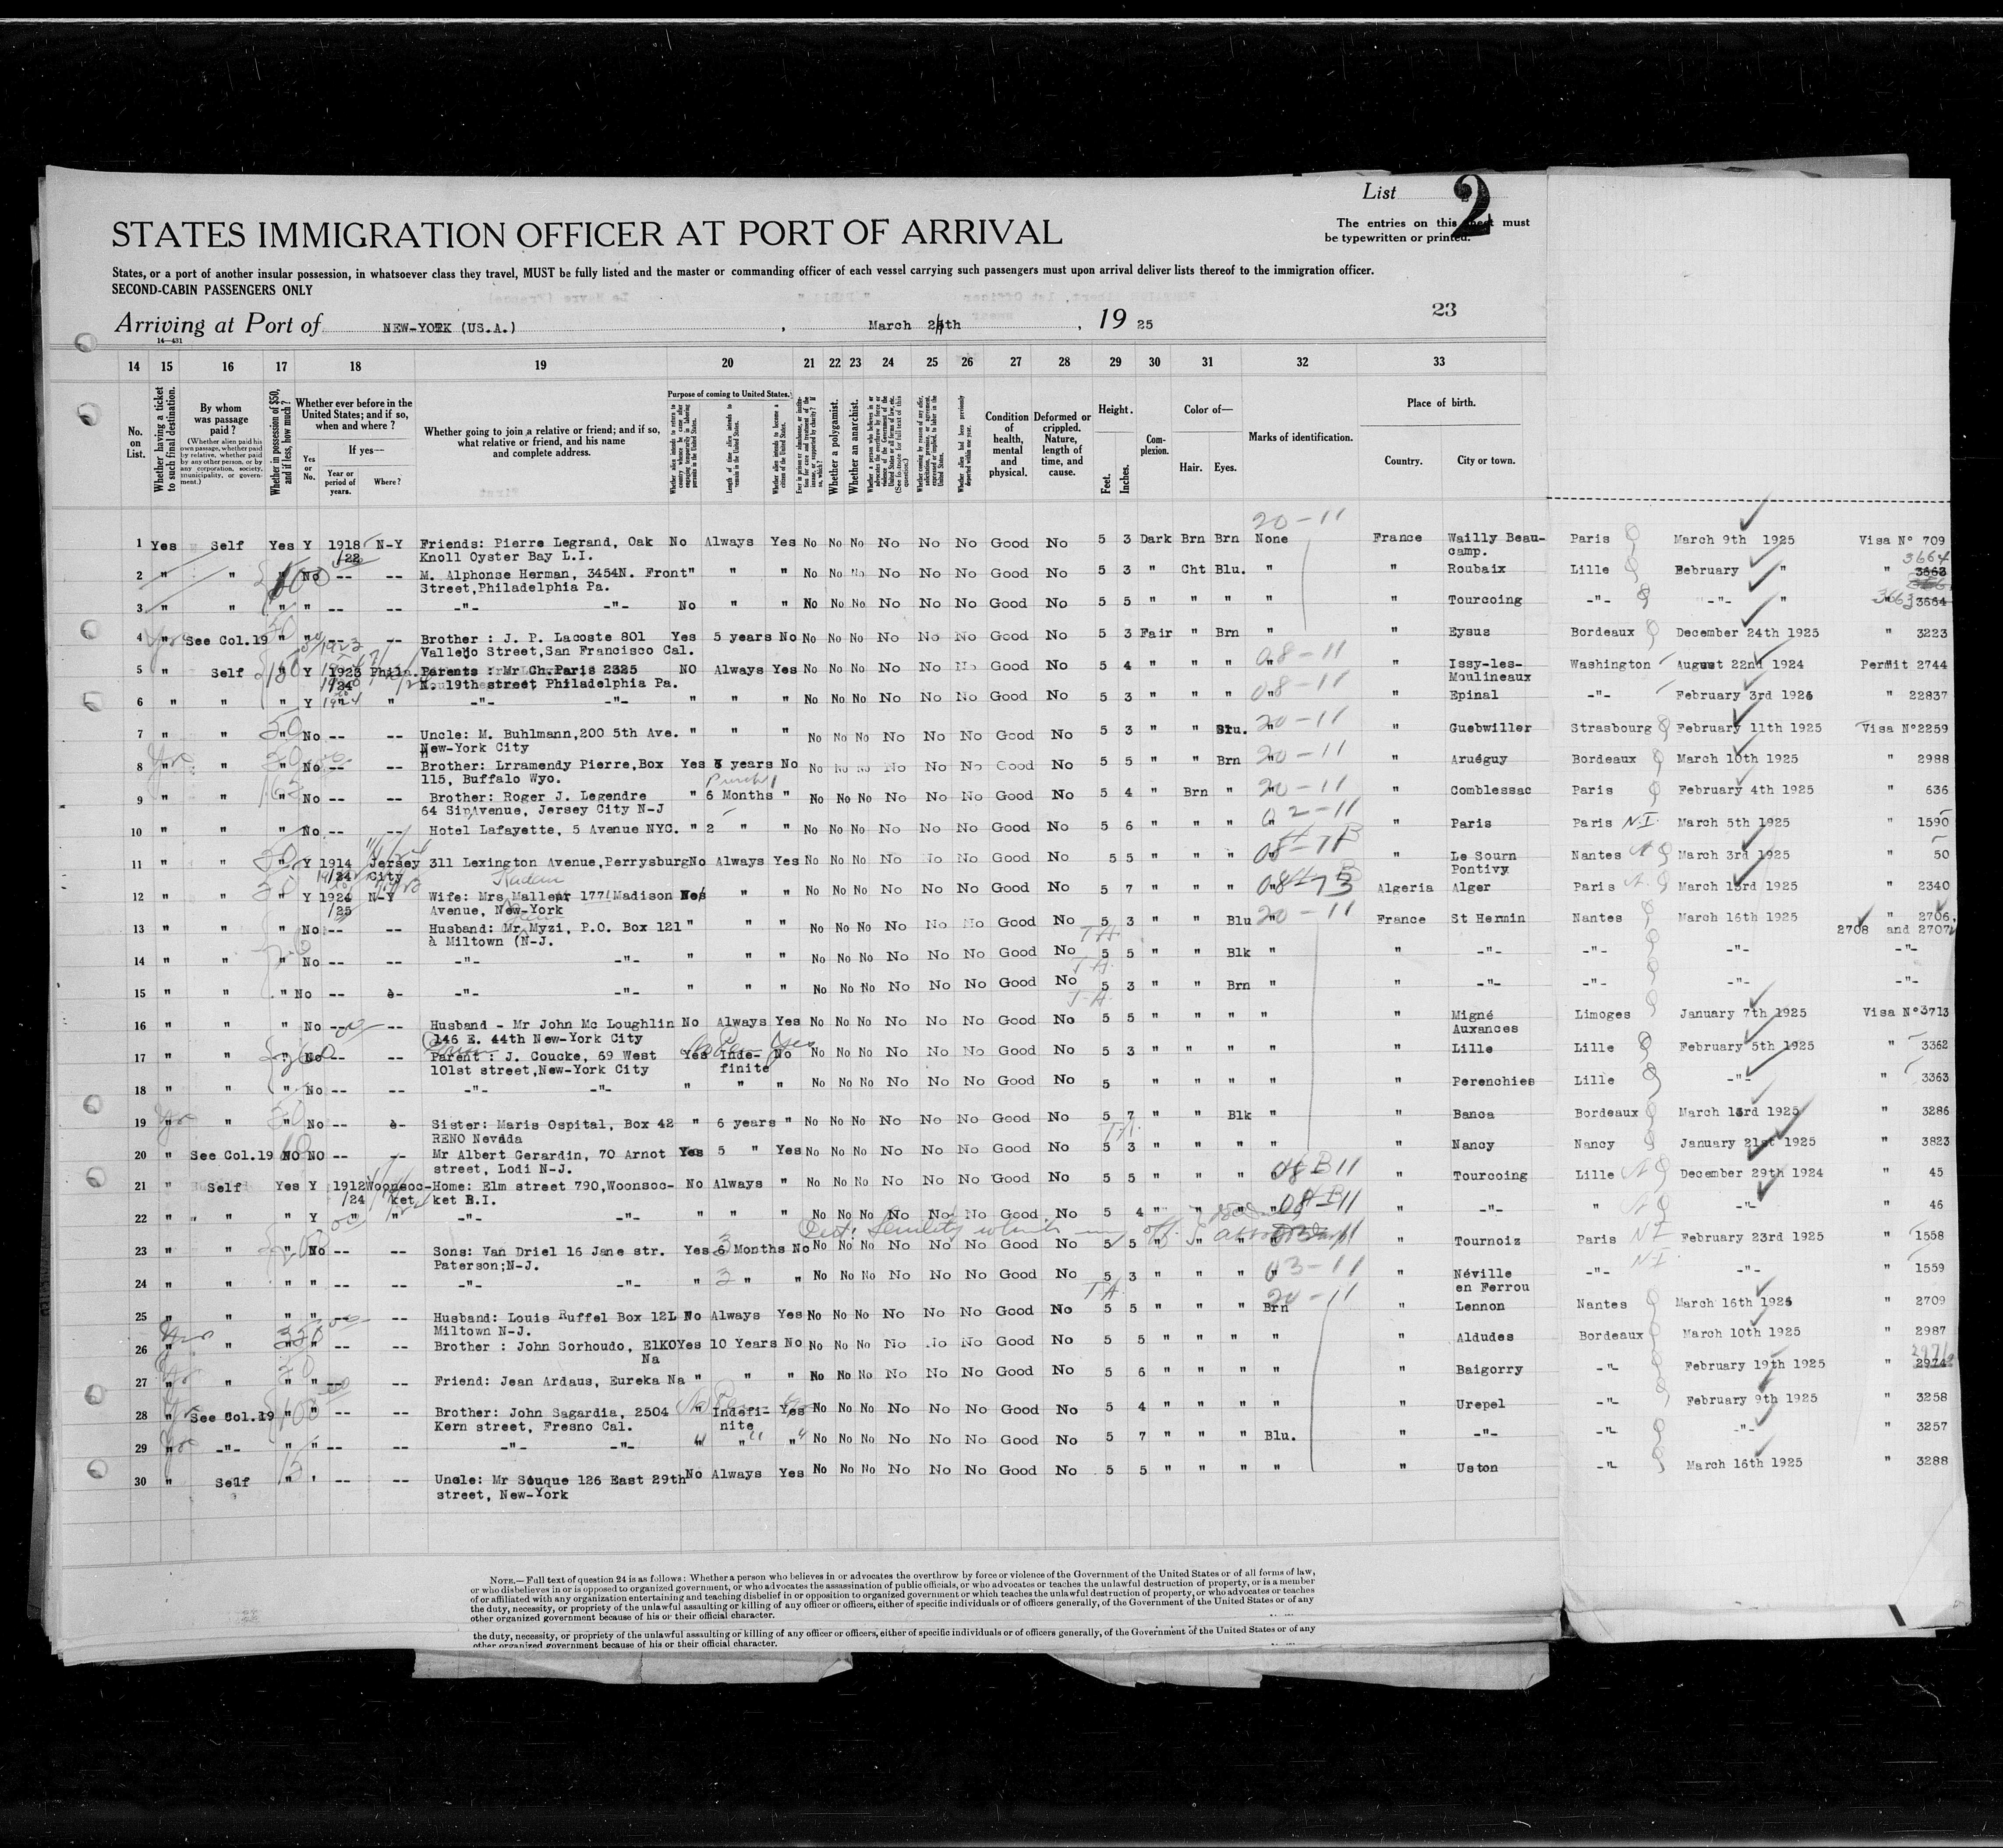 List 2
The entries on this sheet must
be typewritten or printed.
STATES IMMIGRATION OFFICER AT PORT OF ARRIVAL
States, or a port of another insular possession, in whatsoever class they travel, MUST be fully listed and the master or commanding officer of each vessel carrying such passengers must upon arrival deliver lists thereof to the immigration officer.
SECOND-CABIN PASSENGERS ONLY
23
Arriving at Port of NEW-YORK (US.A.) , March 24th , 19 25
14—431
14 15 16 17 18 19 20 21 22 23 24 25 26 27 28 29 30 31 32 33
No. on List.
Whether having a ticket to such final destination.
By whom was passage paid?
(Whether alien paid his own passage, whether paid by relative, whether paid by any other person, or by any corporation, society, municipality, or government.)
Whether in possession of $50, and if less, how much?
Whether ever before in the United States; and if so, when and where?
Yes or No.
If yes—
Year or period of years.
Where?
Whether going to join a relative or friend; and if so, what relative or friend, and his name and complete address.
Purpose of coming to United States.
Length of time alien intends to remain in the United States.
Whether alien intends to become a citizen of the United States.
Whether a polygamist.
Whether an anarchist.
Condition of health, mental and physical.
Deformed or crippled. Nature, length of time, and cause.
Height.
Feet.
Inches.
Complexion.
Color of—
Hair. Eyes.
Marks of identification.
Place of birth.
Country. City or town.
20-11
1 Yes Self Yes Y 1918 N-Y Friends: Pierre Legrand, Oak No Always Yes No No No No No No Good No 5 3 Dark Brn Brn None France Wailly Beau- Paris March 9th 1925 Visa N° 709
/22 Knoll Oyster Bay L.I. camp. 3664
2 " " " No -- -- M. Alphonse Herman, 3454N. Front" " " No No No No No No Good No 5 3 " Cht Blu. " " Roubaix Lille February " " 3663
Street,Philadelphia Pa.
3 " " " " -- -- -"- -"- No " " No No No No No No Good No 5 5 " " " " " Tourcoing -"- -"- " 3663 3664
4 " See Col.19 " " -- -- Brother : J. P. Lacoste 801 Yes 5 years No No No No No No No Good No 5 3 Fair " Brn " " Eysus Bordeaux December 24th 1925 " 3223
Vallejo Street,San Francisco Cal.
5 " Self " Y 1923 Phila. Parents : Mr Ch.Paris 2325 NO Always Yes No No No No No No Good No 5 4 " " " " 08-11 " Issy-les- Washington August 22nd 1924 Permit 2744
/24 N. 19th street Philadelphia Pa. Moulineaux
6 " " " Y " " -"- -"- " " " No No No No No No Good No 5 3 " " " " 08-11 " Epinal -"- February 3rd 1925 " 22837
7 " " " No -- -- Uncle: M. Buhlmann,200 5th Ave. " " " No No No No No No Good No 5 3 " " Blu. " 20-11 " Guebwiller Strasbourg February 11th 1925 Visa N°2259
New-York City
8 " " " No -- -- Brother: Lrramendy Pierre,Box Yes 5 years No No No No No No No Good No 5 5 " " Brn " 20-11 " Aruéguy Bordeaux March 10th 1925 " 2988
115, Buffalo Wyo.
9 " " " No -- -- Brother: Roger J. Legendre " 6 Months " No No No No No No Good No 5 4 " Brn " " 20-11 " Comblessac Paris February 4th 1925 " 636
64 Sip Avenue, Jersey City N-J
10 " " " No -- -- Hotel Lafayette, 5 Avenue NYC. " 2 " " No No No No No No Good No 5 6 " " " " 02-11 " Paris Paris N.I. March 5th 1925 " 1590
11 " " " Y 1914 Jersey 311 Lexington Avenue,Perrysburg No Always Yes No No No No No No Good No 5 5 " " " " " Le Sourn Nantes March 3rd 1925 " 50
/24 City Pontivy
12 " " " Y 1924 N-Y Wife: Mrs Mallent 177 Madison " " No No No No No No Good No 5 7 " " " " Algeria Alger Paris March 13rd 1925 " 2340
/25 Avenue, New-York
13 " " " No -- -- Husband: Mr Myzi, P.O. Box 121 " " " No No No No No No Good No 5 3 " " Blu " 20-11 France St Hermin Nantes March 16th 1925 " 2706,
à Miltown (N-J. 2708 and 2707
14 " " " No -- -- -"- -"- " " " No No No No No No Good No 5 5 " " Blk " " -"- -"- -"- -"-
15 " " " No -- -- -"- -"- " " " No No No No No No Good No 5 3 " " Brn " " -"- -"- -"- -"-
16 " " " No -- -- Husband - Mr John Mc Loughlin No Always Yes No No No No No No Good No 5 5 " " " " " Migné Limoges January 7th 1925 Visa N°3713
146 E. 44th New-York City Auxances
17 " " " No -- -- Parent : J. Coucke, 69 West Yes Inde- No No No No No No No Good No 5 3 " " " " " Lille Lille February 5th 1925 " 3362
101st street,New-York City finite
18 " " " No -- -- -"- -"- " " " No No No No No No Good No 5 " " " " " Perenchies Lille -"- " 3363
19 " " " No -- -- Sister: Maris Ospital, Box 42 " 6 years " No No No No No No Good No 5 7 " " Blk " " Banca Bordeaux March 13rd 1925 " 3286
RENO Nevada
20 " See Col.19 NO NO -- -- Mr Albert Gerardin, 70 Arnot Yes 5 " Yes No No No No No No Good No 5 3 " " " " " Nancy Nancy January 21st 1925 " 3823
street, Lodi N-J.
21 " Self Yes Y 1912 Woonsoc- Home: Elm street 790,Woonsoc- No Always " No No No No No No Good No 5 5 " " " " Tourcoing Lille December 29th 1924 " 45
/24 ket ket R.I.
22 " " " Y " " -"- -"- " " " No No No No No No Good No 5 4 " " " " " -"- " -"- " 46
23 " " " No -- -- Sons: Van Driel 16 Jane str. Yes 6 Months No No No No No No No Good No 5 5 " " " " Tournoiz Paris N I February 23rd 1925 " 1558
Paterson;N-J.
24 " " " " -- -- -"- -"- " 3 " " No No No No No No Good No 5 3 " " " " 03-11 " Néville -"- N I -"- " 1559
en Ferrou
25 " " " " -- -- Husband: Louis Ruffel Box 12L No Always Yes No No No No No No Good No 5 5 " " " Brn 20-11 " Lennon Nantes March 16th 1925 " 2709
Miltown N-J.
26 " " " " -- -- Brother : John Sorhoudo, ElKO Yes 10 Years No No No No No No No Good No 5 5 " " " " " Aldudes Bordeaux March 10th 1925 " 2987
Na
27 " " " " -- -- Friend: Jean Ardaus, Eureka Na " " " No No No No No No Good No 5 6 " " " " " Baigorry -"- February 19th 1925 " 2974
28 " See Col.19 " " -- -- Brother: John Sagardia, 2504 " Indefi- Yes No No No No No No Good No 5 4 " " " " " Urepel -"- February 9th 1925 " 3258
Kern street, Fresno Cal. nite
29 " -"- " " -- -- -"- -"- " " " No No No No No No Good No 5 7 " " " Blu. " -"- -"- -"- " 3257
30 " Self " " -- -- Uncle: Mr Souque 126 East 29th No Always Yes No No No No No No Good No 5 5 " " " " " Uston -"- March 16th 1925 " 3288
street, New-York
NOTE.—Full text of question 24 is as follows: Whether a person who believes in or advocates the overthrow by force or violence of the Government of the United States or of all forms of law,
or who disbelieves in or is opposed to organized government, or who advocates the assassination of public officials, or who advocates or teaches the unlawful destruction of property, or is a member
of or affiliated with any organization entertaining and teaching disbelief in or opposition to organized government or which teaches the unlawful destruction of property, or who advocates or teaches
the duty, necessity, or propriety of the unlawful assaulting or killing of any officer or officers, either of specific individuals or of officers generally, of the Government of the United States or of any
other organized government because of his or their official character.
the duty, necessity, or propriety of the unlawful assaulting or killing of any officer or officers, either of specific individuals or of officers generally, of the Government of the United States or of any
other organized government because of his or their official character.